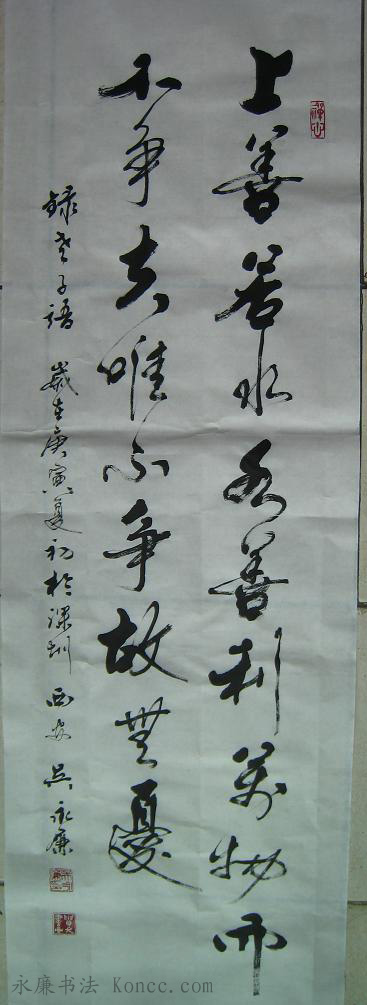 上善若水水善利萬物而
不争夫唯不争故無憂
録老子語 歲在庚寅夏初於深圳 西安 吳永廉
永廉书法 Koncc.com